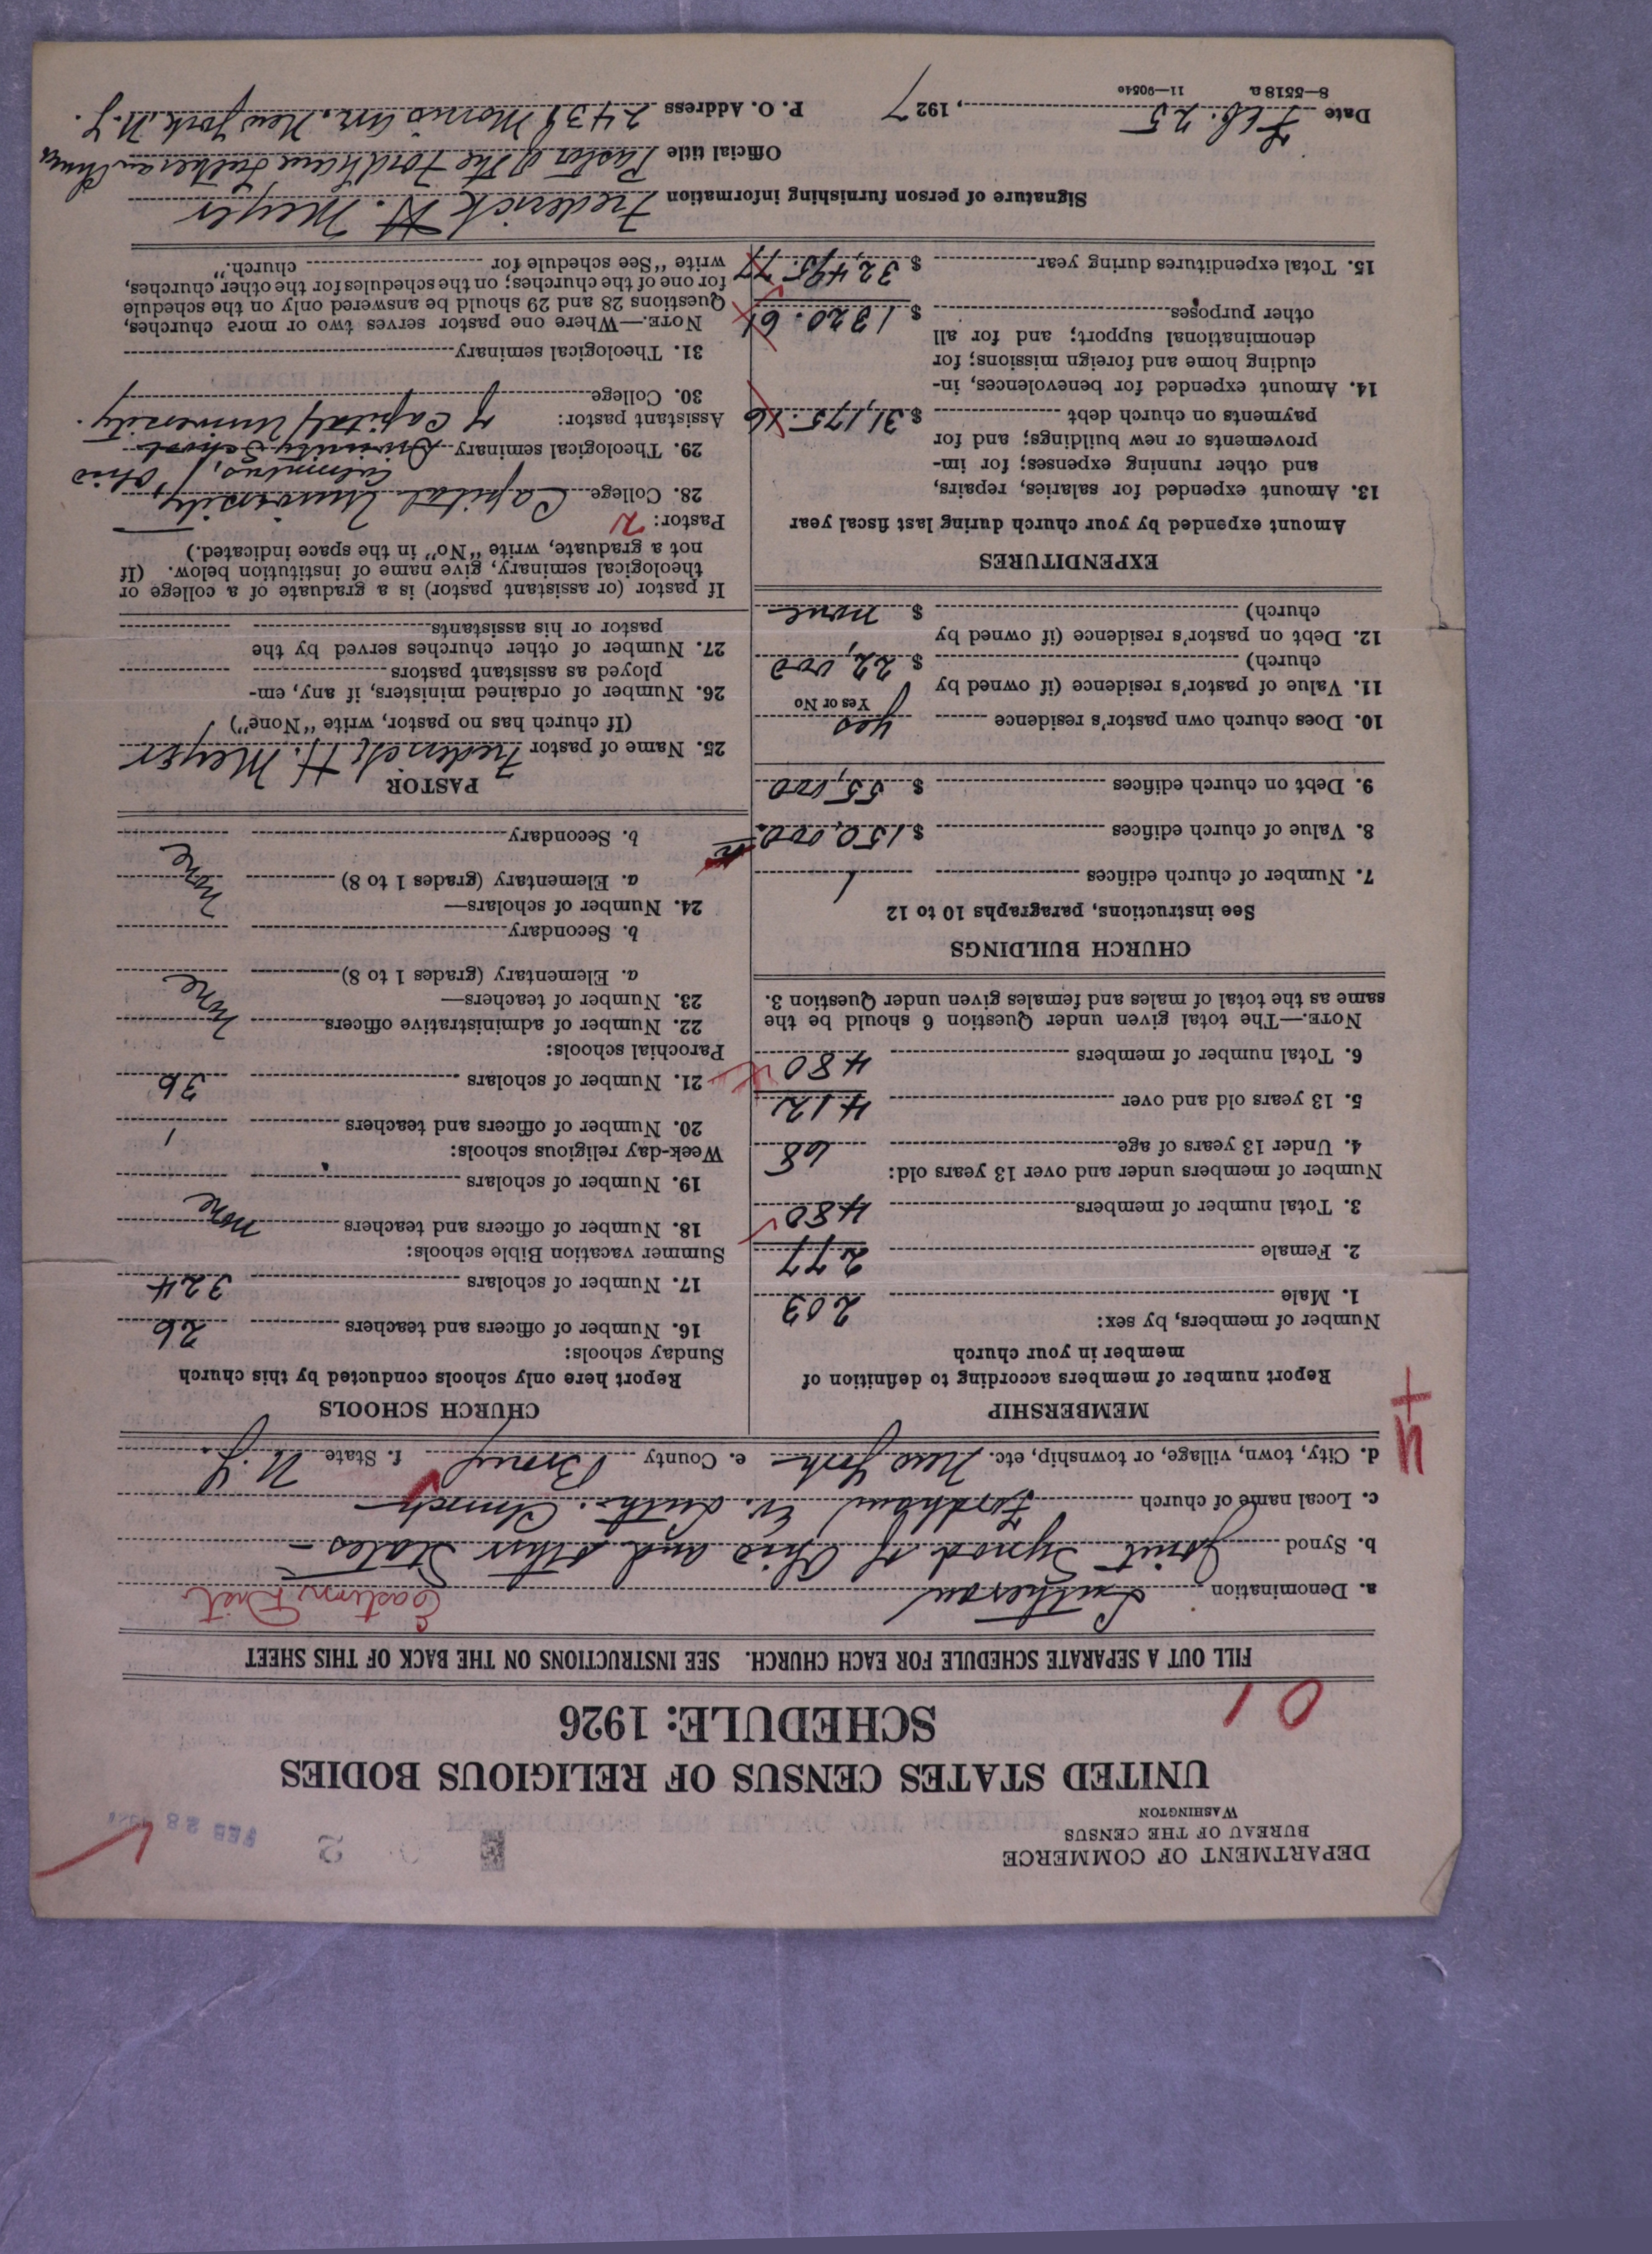 DEPARTMENT OF COMMERCE
BUREAU OF THE CENSUS
WASHINGTON
FEB 28
2
UNITED STATES CENSUS OF RELIGIOUS BODIES
SCHEDULE: 1926
01
FILL OUT A SEPARATE SCHEDULE FOR EACH CHURCH. SEE INSTRUCTIONS ON THE BACK OF THIS SHEET
a. Denomination Lutheran Eastern Dist
b. Synod Joint Synod of Ohio and other States
c. Local name of church Fordham Ev. Luth. Church
d. City, town, village, or township, etc. New York e. County Bronx f. State N.Y.
MEMBERSHIP
Report number of members according to definition of
member in your church
Number of members, by sex:
1. Male 203
2. Female 277
3. Total number of members 480
Number of members under and over 13 years old:
4. Under 13 years of age 68
5. 13 years old and over 412
6. Total number of members 480
NOTE.—The total given under Question 6 should be the
same as the total of males and females given under Question 3.
CHURCH BUILDINGS
See instructions, paragraphs 10 to 12
7. Number of church edifices 1
8. Value of church edifices $ 150,000
9. Debt on church edifices $ 55,000
10. Does church own pastor's residence yes
Yes or No
11. Value of pastor's residence (if owned by
church) $ 22,000
12. Debt on pastor's residence (if owned by
church) $ none
EXPENDITURES
Amount expended by your church during last fiscal year
13. Amount expended for salaries, repairs,
and other running expenses; for im-
provements or new buildings; and for
payments on church debt $ 31,175.16
14. Amount expended for benevolences, in-
cluding home and foreign missions; for
denominational support; and for all
other purposes $ 1320.61
15. Total expenditures during year $ 32,495.77
CHURCH SCHOOLS
Report here only schools conducted by this church
Sunday schools:
16. Number of officers and teachers 26
17. Number of scholars 324
Summer vacation Bible schools:
18. Number of officers and teachers none
19. Number of scholars
Week-day religious schools:
20. Number of officers and teachers 1
21. Number of scholars 36
Parochial schools:
22. Number of administrative officers none
23. Number of teachers—
a. Elementary (grades 1 to 8)
b. Secondary
24. Number of scholars—
a. Elementary (grades 1 to 8) none
b. Secondary
PASTOR
25. Name of pastor Frederick H. Meyer
(If church has no pastor, write "None")
26. Number of ordained ministers, if any, em-
ployed as assistant pastors
27. Number of other churches served by the
pastor or his assistants
If pastor (or assistant pastor) is a graduate of a college or
theological seminary, give name of institution below. (If
not a graduate, write "No" in the space indicated.)
Pastor:
28. College Capital University,
Columbus, Ohio
29. Theological seminary Divinity School
of Capital University.
Assistant pastor:
30. College
31. Theological seminary
NOTE.—Where one pastor serves two or more churches,
Questions 28 and 29 should be answered only on the schedule
for one of the churches; on the schedules for the other churches,
write "See schedule for church."
Signature of person furnishing information Frederick H. Meyer
Official title Pastor of the Fordham Lutheran Church
Date Feb. 25, 1927 P. O. Address 2431 Morris Ave. New York N.Y.
8—5518 a 11—9054e